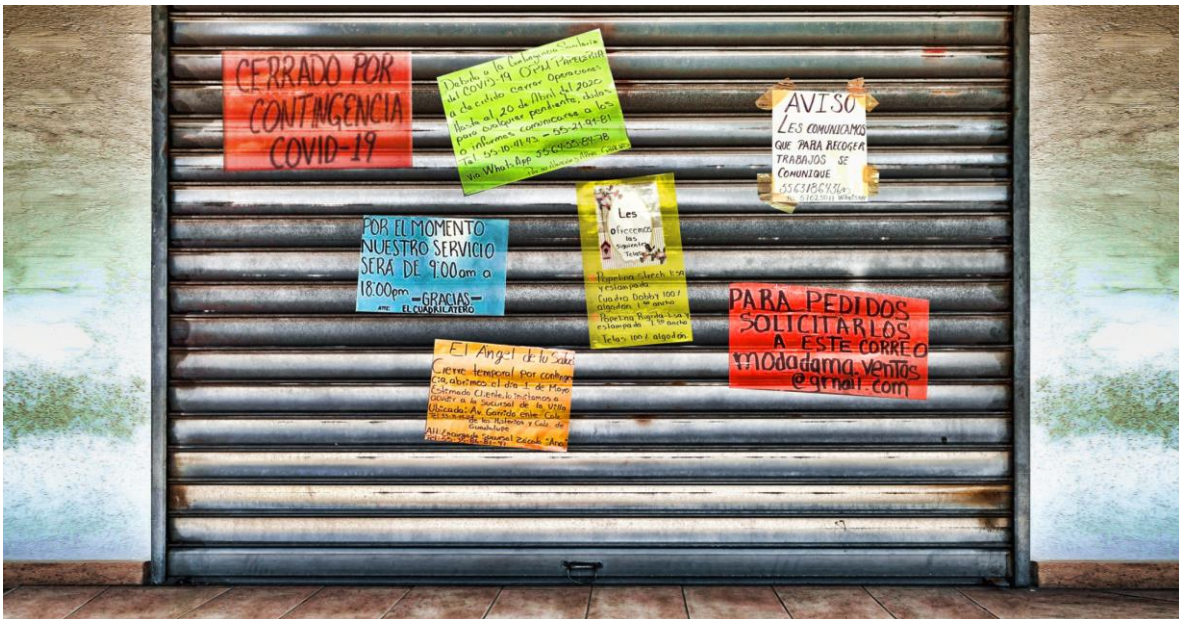 CERRADO POR
CONTINGENCIA
COVID-19
Debido a la Contingencia Sanitaria
del COVID-19 OPM PAPELERIA
a decidido cerrar Operaciones
Hasta el 20 de Abril del 2020
para cualquier pendiente, dudas
o informes comunicarse a los
Tel. 55-10-41-43 - 55-21-94-81
via WhatsApp 55 64-55-84-78
AVISO
LES COMUNICAMOS
QUE PARA RECOGER
TRABAJOS SE
COMUNIQUE
WhatsApp
POR EL MOMENTO
NUESTRO SERVICIO
SERÁ DE 9:00am a
18:00pm -GRACIAS-
ATTE: EL CUADRILATERO
Les
ofrecemos
las
siguientes
Telas
Popelina strech lisa
y estampada
Cuadro Dobby 100%
algodón 1.50 ancho
Popelina Rigida lisa y
estampada 1.50 ancho
Telas 100% algodón
PARA PEDIDOS
SOLICITARLOS
A ESTE CORREO
modadama.ventas
@gmail.com
El Angel de tu Salud
Cierre temporal por contingen
cia, abrimos el dia 1 de Mayo
Estimado Cliente, lo invitamos a
acudir a la Sucursal de la Villa
Ubicada: Av. Garrido entre Calz.
de los Misterios y Calz. de
Guadalupe
Sucursal Zócalo: Ana